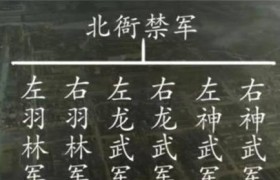 北衙禁军
左羽林军
右羽林军
左龙武军
右龙武军
左神武军
右神武军